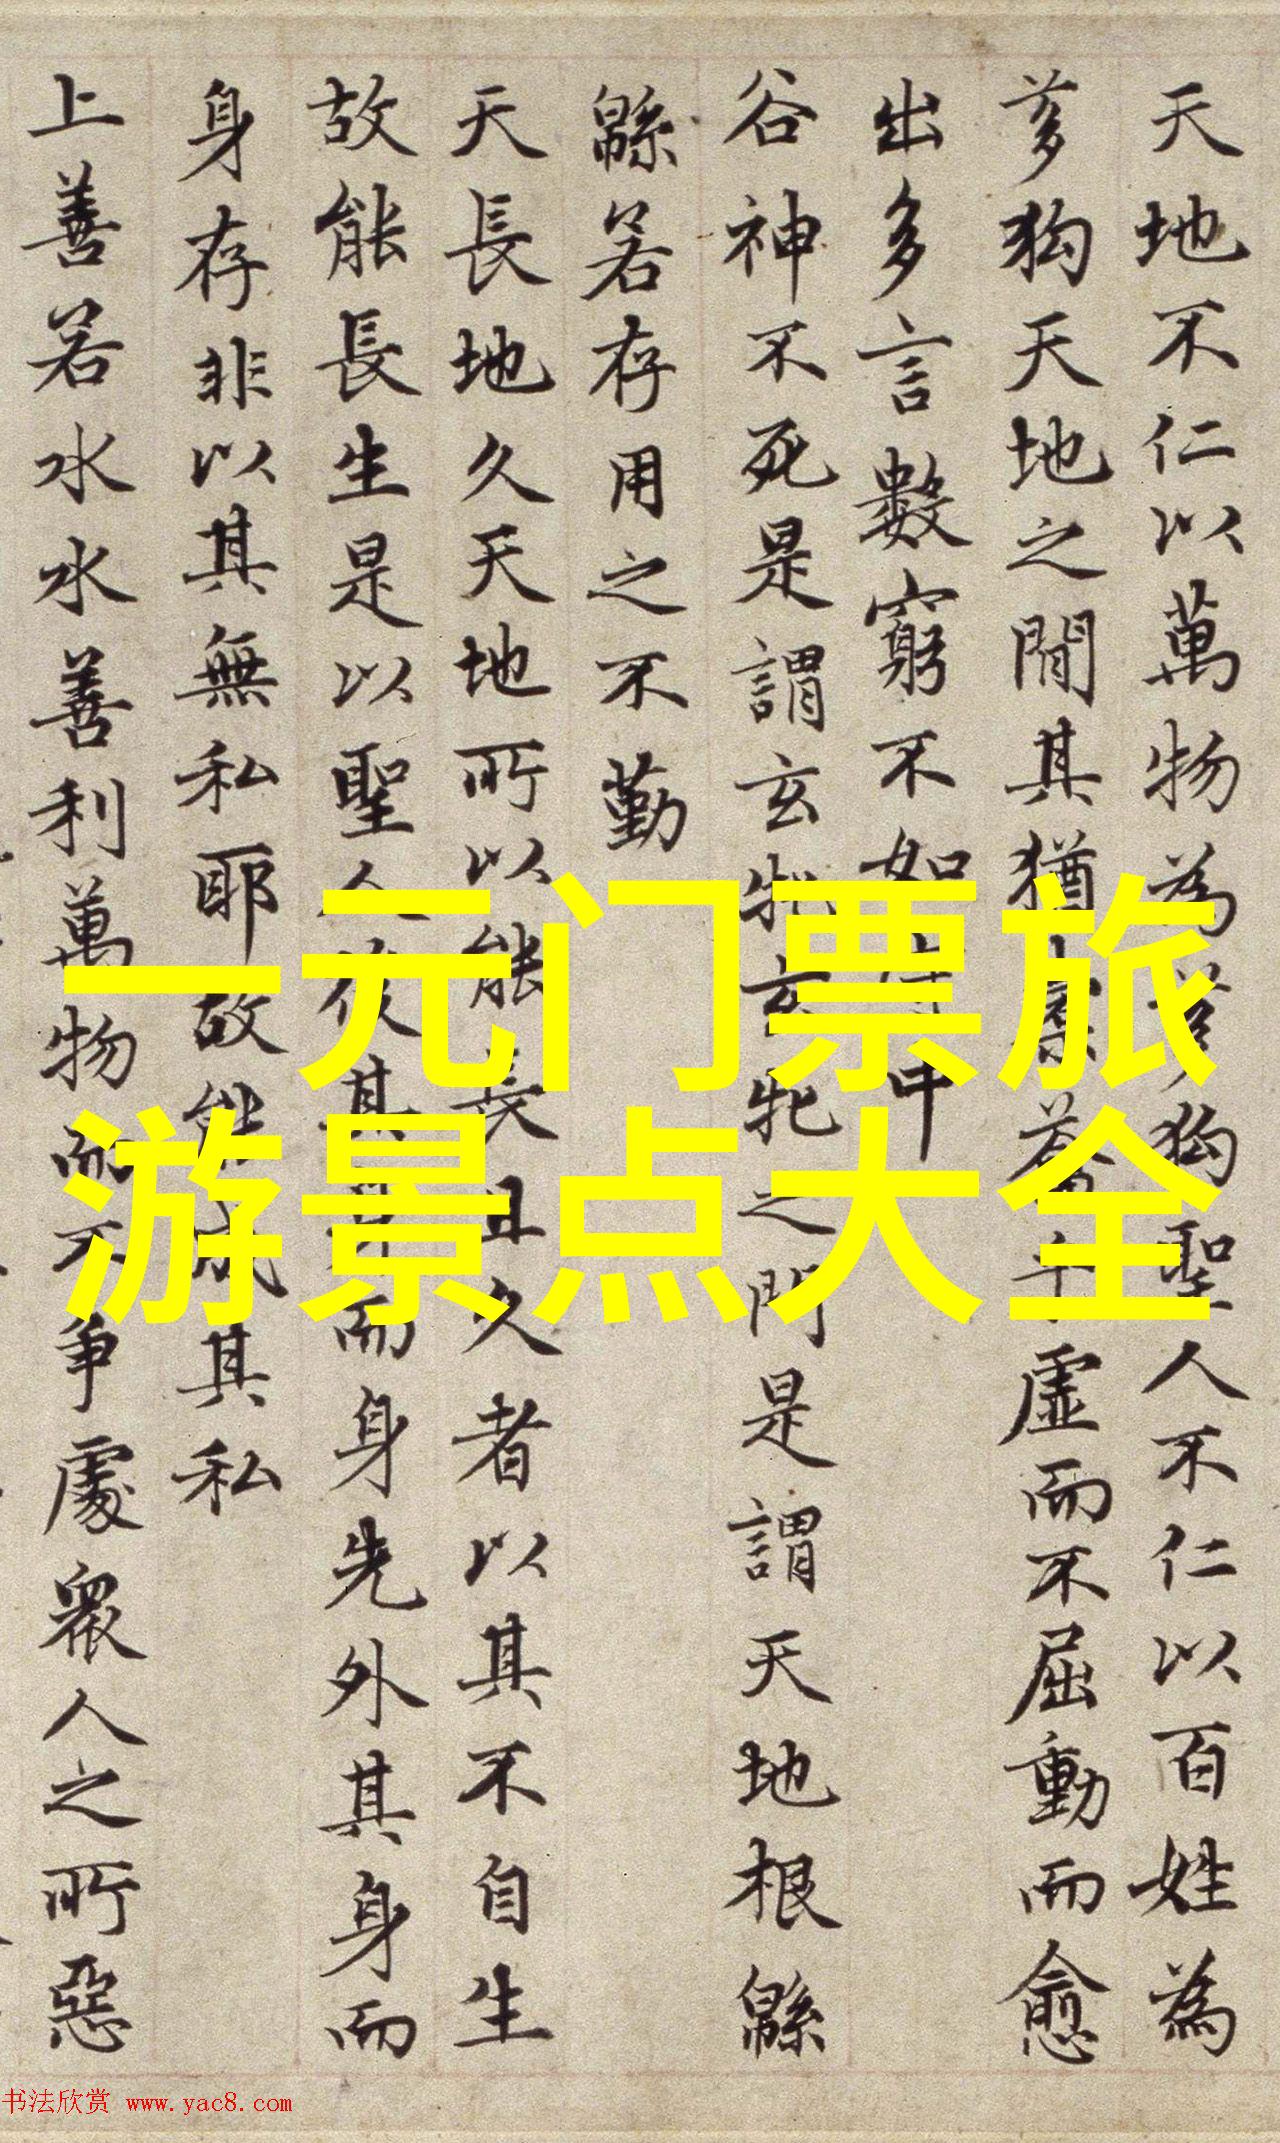 天地不仁以萬物為芻狗聖人不仁以百姓為
芻狗天地之間其猶橐蘥乎虛而不屈動而愈
出多言數窮不如守中
谷神不死是謂玄牝玄牝之門是謂天地根緜
緜若存用之不勤
天長地久天地所以能長且久者以其不自生
故能長生是以聖人後其身而身先外其身而
身存非以其無私耶故能成其私
上善若水水善利萬物而不爭處眾人之所惡
一元门票旅
游景点大全
书法欣赏 www.yac8.com